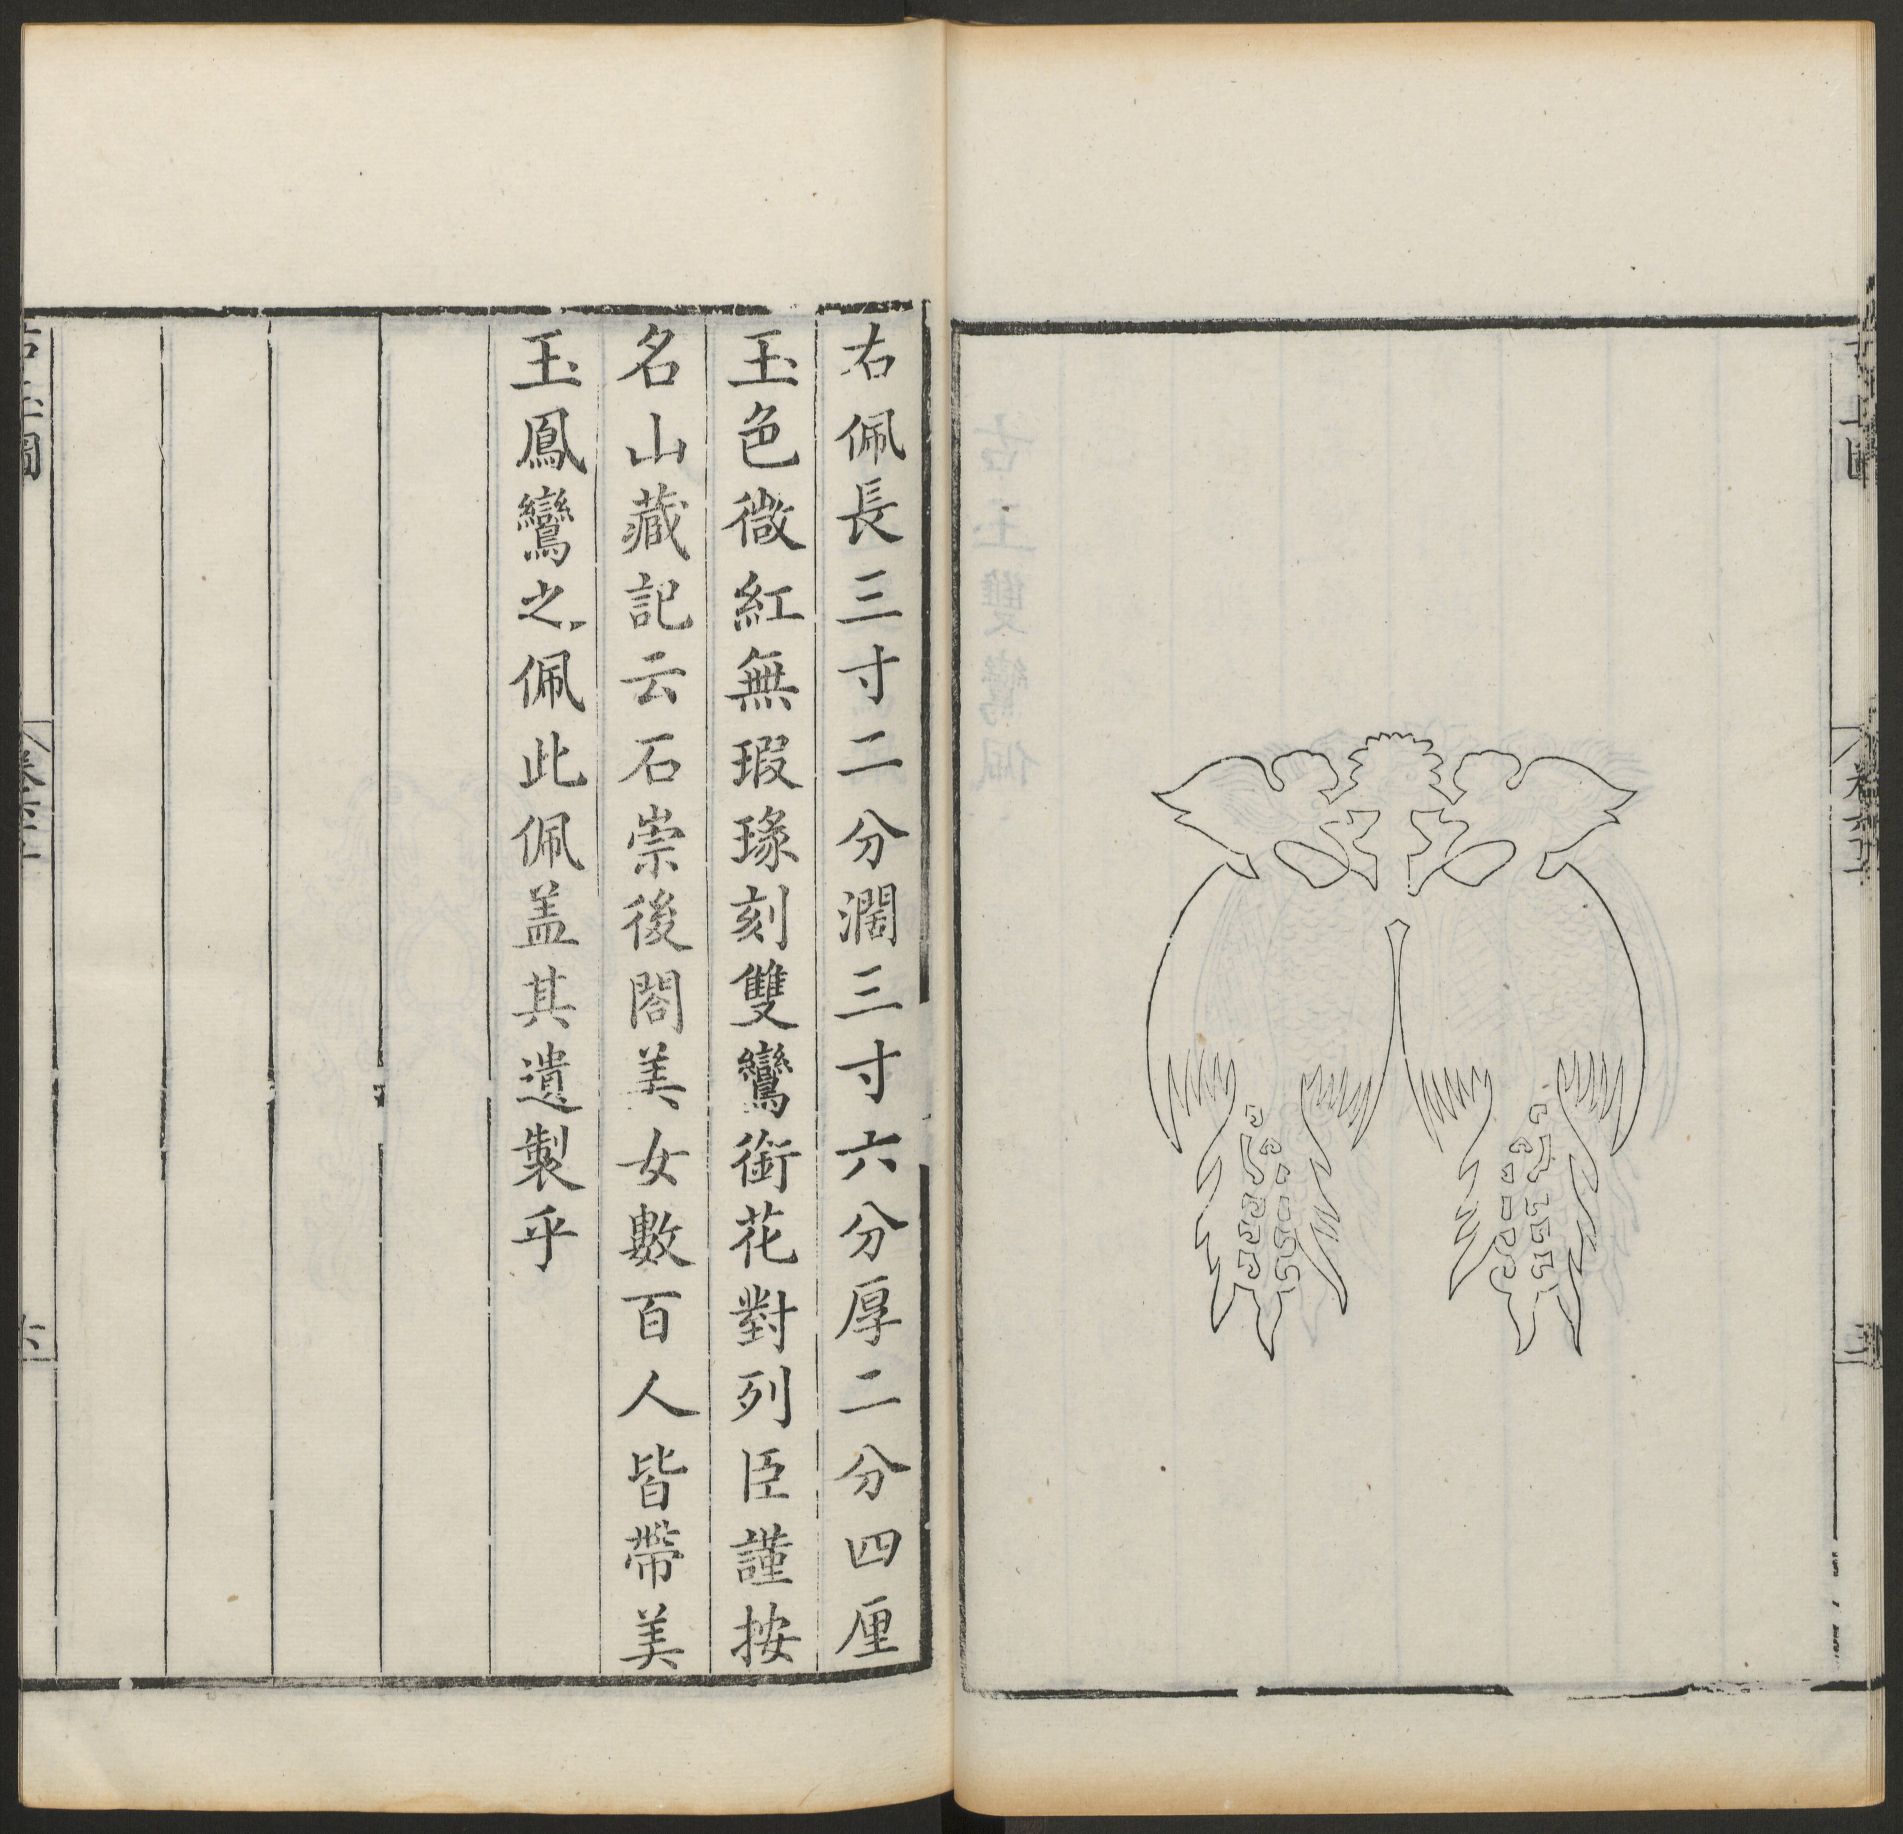 右佩長三寸二分濶三寸六分厚二分四厘
玉色微紅無瑕瑑刻雙鸞銜花對列臣謹按
名山藏記云石崇後閣美女數百人皆帶美
玉鳳鸞之佩此佩盖其遺製乎